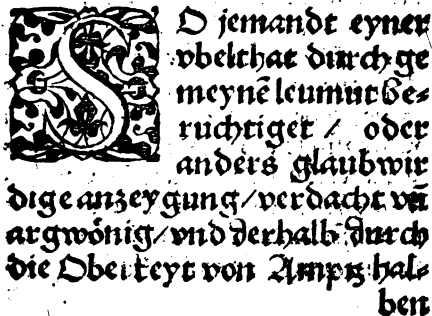 SO jemandt eyner
vbelthat durch ge
meynē leumut be⸗
rüchtiget / oder
anders glaubwir
dige anzeygung / verdacht vñ
argwönig / vnd derhalb durch
die Oberkeyt von Ampts hal⸗
ben